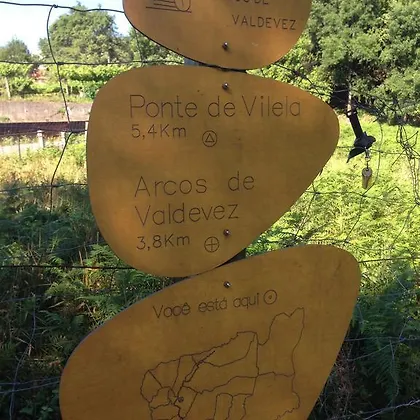 VALDEVEZ
Ponte de Vilela
5,4Km
Arcos de
Valdevez
3,8Km
Você está aqui